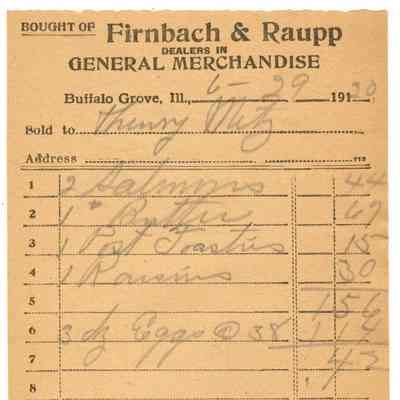 BOUGHT OF Firnbach & Raupp
DEALERS IN
GENERAL MERCHANDISE
Buffalo Grove, Ill., 6-29 191 20
Sold to Henry Metz
Address
1 2 Salmons 44
2 1 # Butter 67
3 1 Post Toasties 15
4 1 Raisins 30
5 156
6 3 dz Eggs @ 38 114
7 42
8